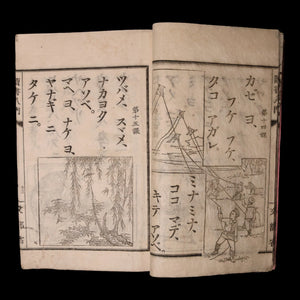 第十四課
カゼ ヨ、
フケ フケ、
タコ アガレ
ミナミナ、
ココ マデ、
キテ アソベ。
第十五課
ツバメ、スズメ、
ナカヨク
アソベ。
マヘ ヨ、ナケ ヨ、
ヤナギ ニ、
タケ ニ。